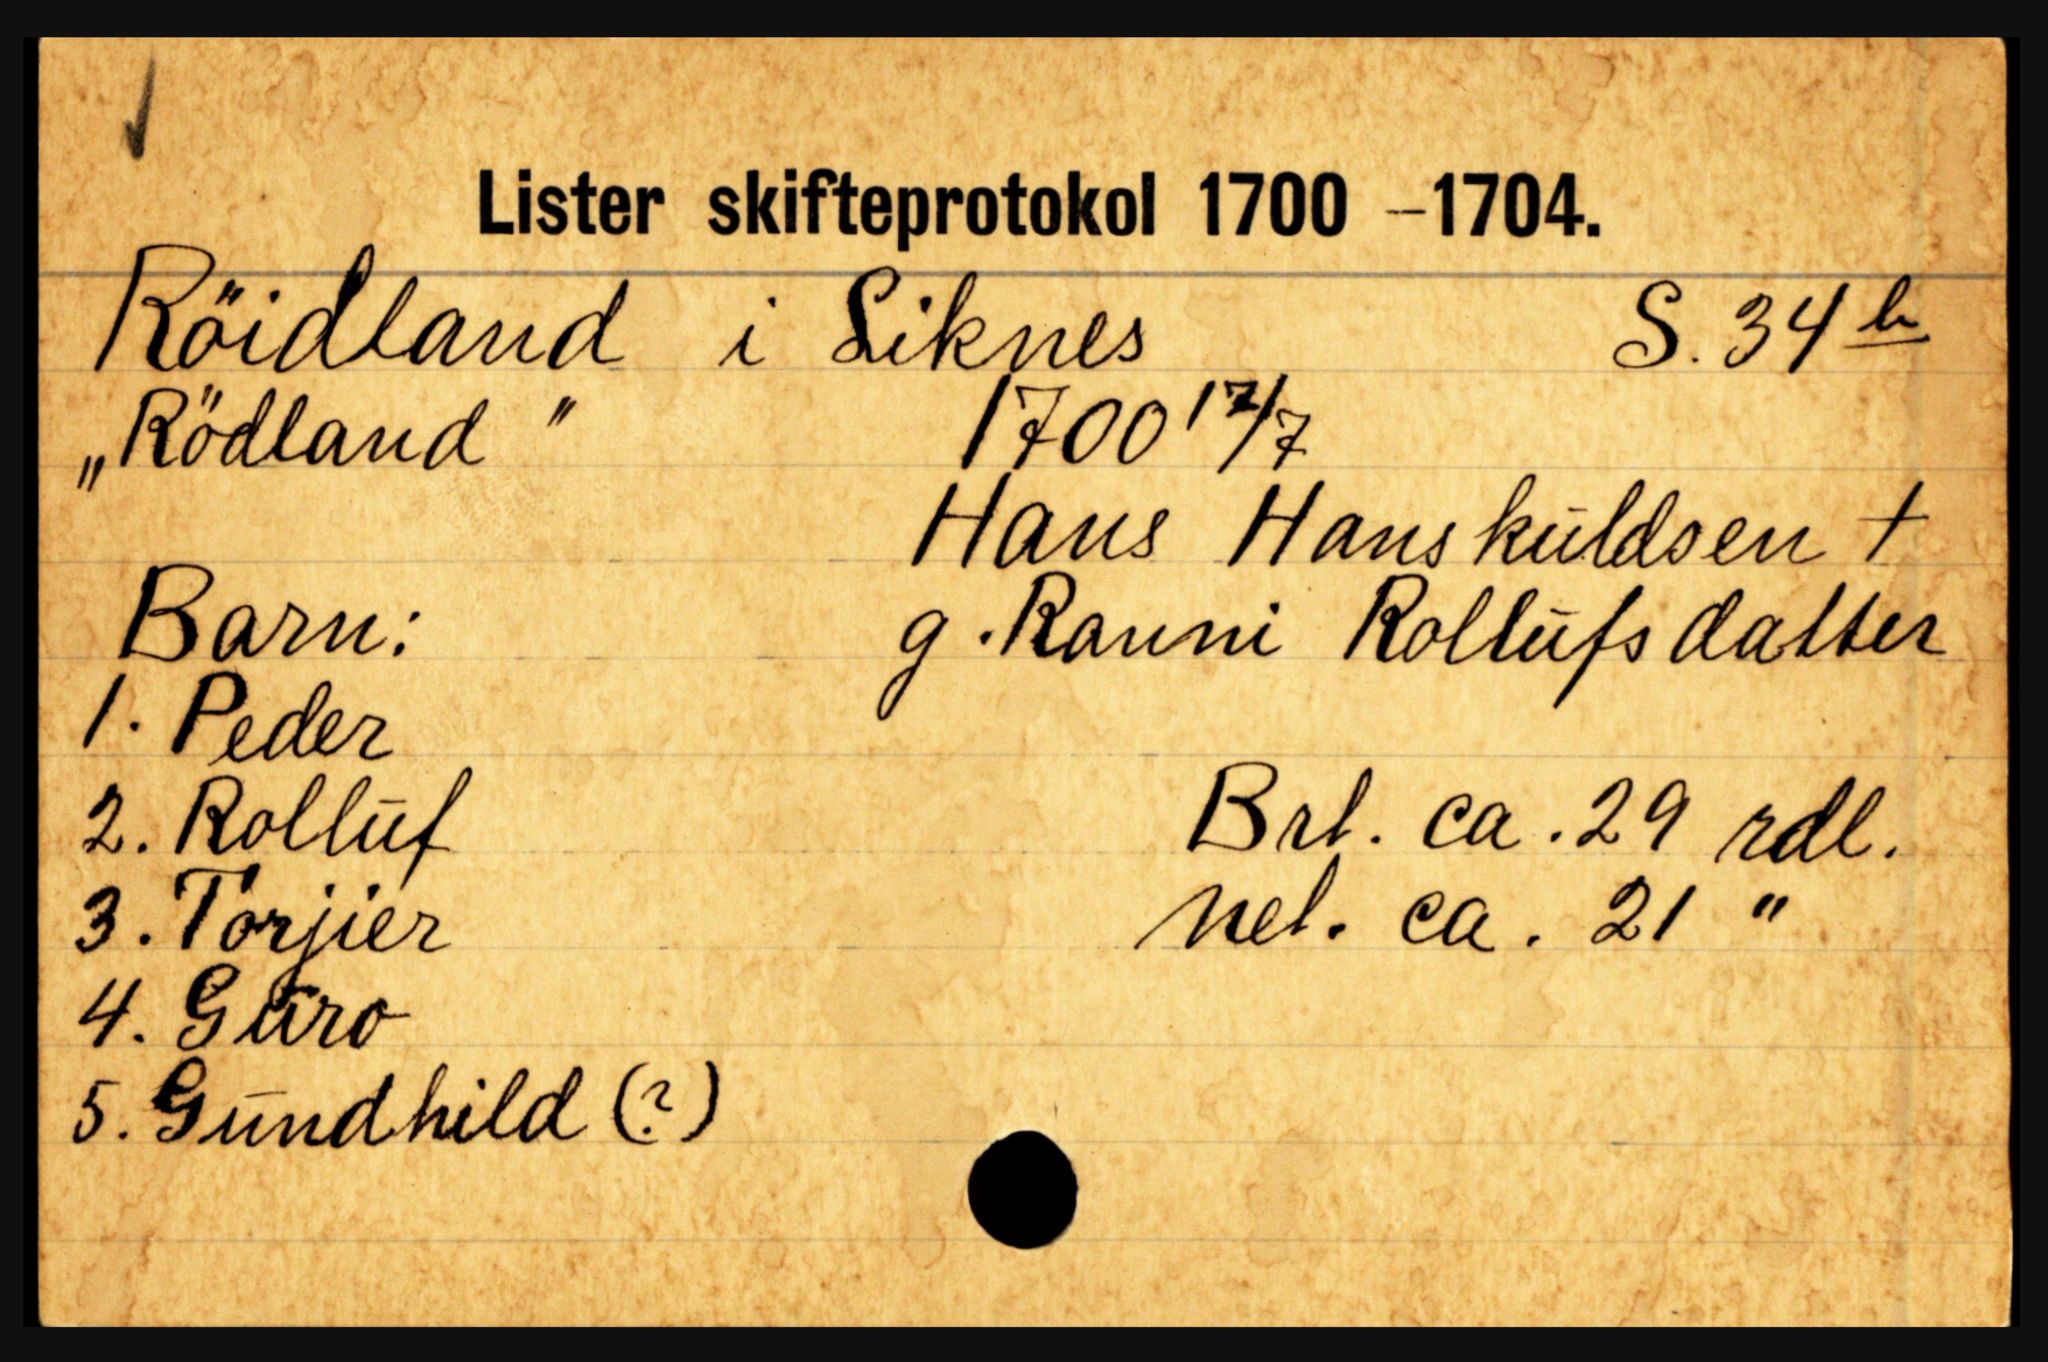 Lister skifteprotokol 1700 -1704.
Röidland i Liknes S. 34 b
„Rödland" 1700 17/7
Hans Hanskuldsen +
Barn: g. Ranni Rollufsdatter
1. Peder
2. Rolluf Brt. ca. 29 rdl.
3. Torjier net. ca. 21 "
4. Guro
5. Gundhild (?)